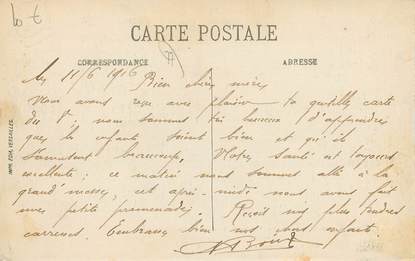 CARTE POSTALE
CORRESPONDANCE
ADRESSE
11/6 1916 Bien chère mère
Nous avons reçu avec plaisir ta gentille carte
du 1er; nous sommes très heureux d'apprendre
que les enfants soient bien et qu'ils
s'amusent beaucoup. Notre santé est toujours
excellente; ce matin nous sommes allé à la
grand'messe, cet après-midi nous avons fait
une petite promenade. Reçois nos plus tendres
caresses. Embrasse bien nos chers enfants.
IMP. EDIA, VERSAILLES.